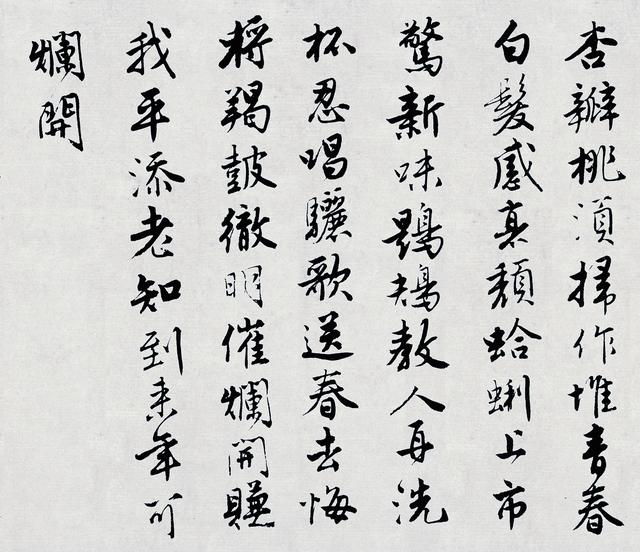 杏瓣桃須掃作堆青春
白髮感衰頹蛤蜊上市
驚新味鶗鴂教人再洗
杯忍唱驪歌送春去悔
將羯鼓徹明催爛開賺
我平添老知到来年可
爛開